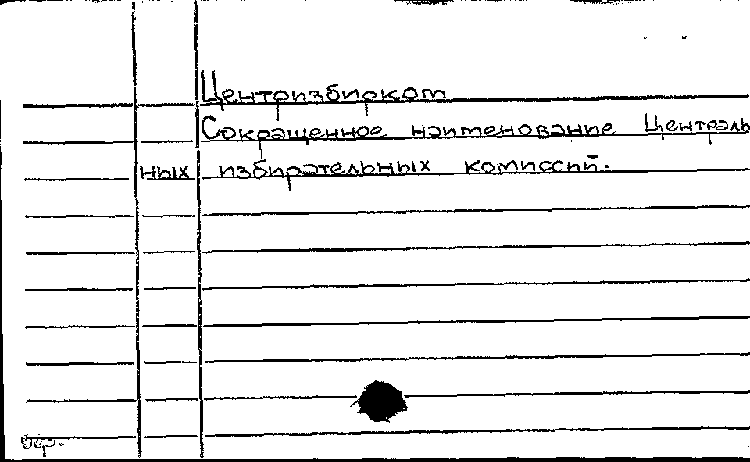 Центризбирком
Сокращенное наименование Централь
ных избирательных комиссий.